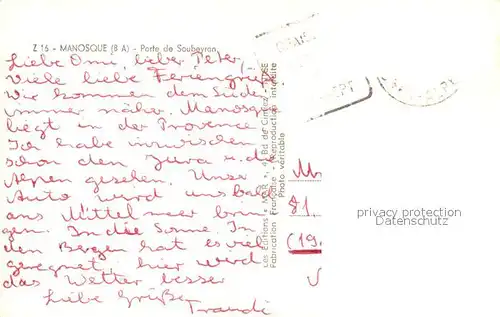 Z 16 - MANOSQUE (B A) - Porte de Soubeyran
Liebe Omi, lieber Peter,
Viele liebe Feriengrüße
Wir kommen dem Süde
immer näher. Manosqu
liegt in der Provence
Ich habe inzwischen
schon den Jura u. die
Alpen gesehen. Unse
Auto wird uns bal
ans Mittelmeer brin
gen. In die Sonne. In
den Bergen hat es viel
geregnet, hier wird
das Wetter besser
Liebe Grüße
Traudi
Les Editions "MAR", 4, Bd de Cimiez - NICE
Fabrication Française - (Reproduction interdite
Photo véritable
81.
(19.
privacy protection
Datenschutz